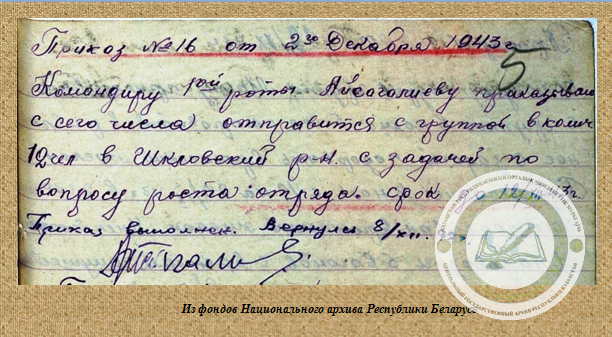 Приказ № 16 от 2го Декабря 1943 г.
5
Командиру 1ой роты Айсагалиеву приказываю
с сего числа отправится с группой в колич
12 чел в Шкловский р-н. с задачей по
вопросу роста отряда. срок до 12/XII-
Приказ выполнен. Вернулся 8/XII.
Из фондов Национального архива Республики Беларусь